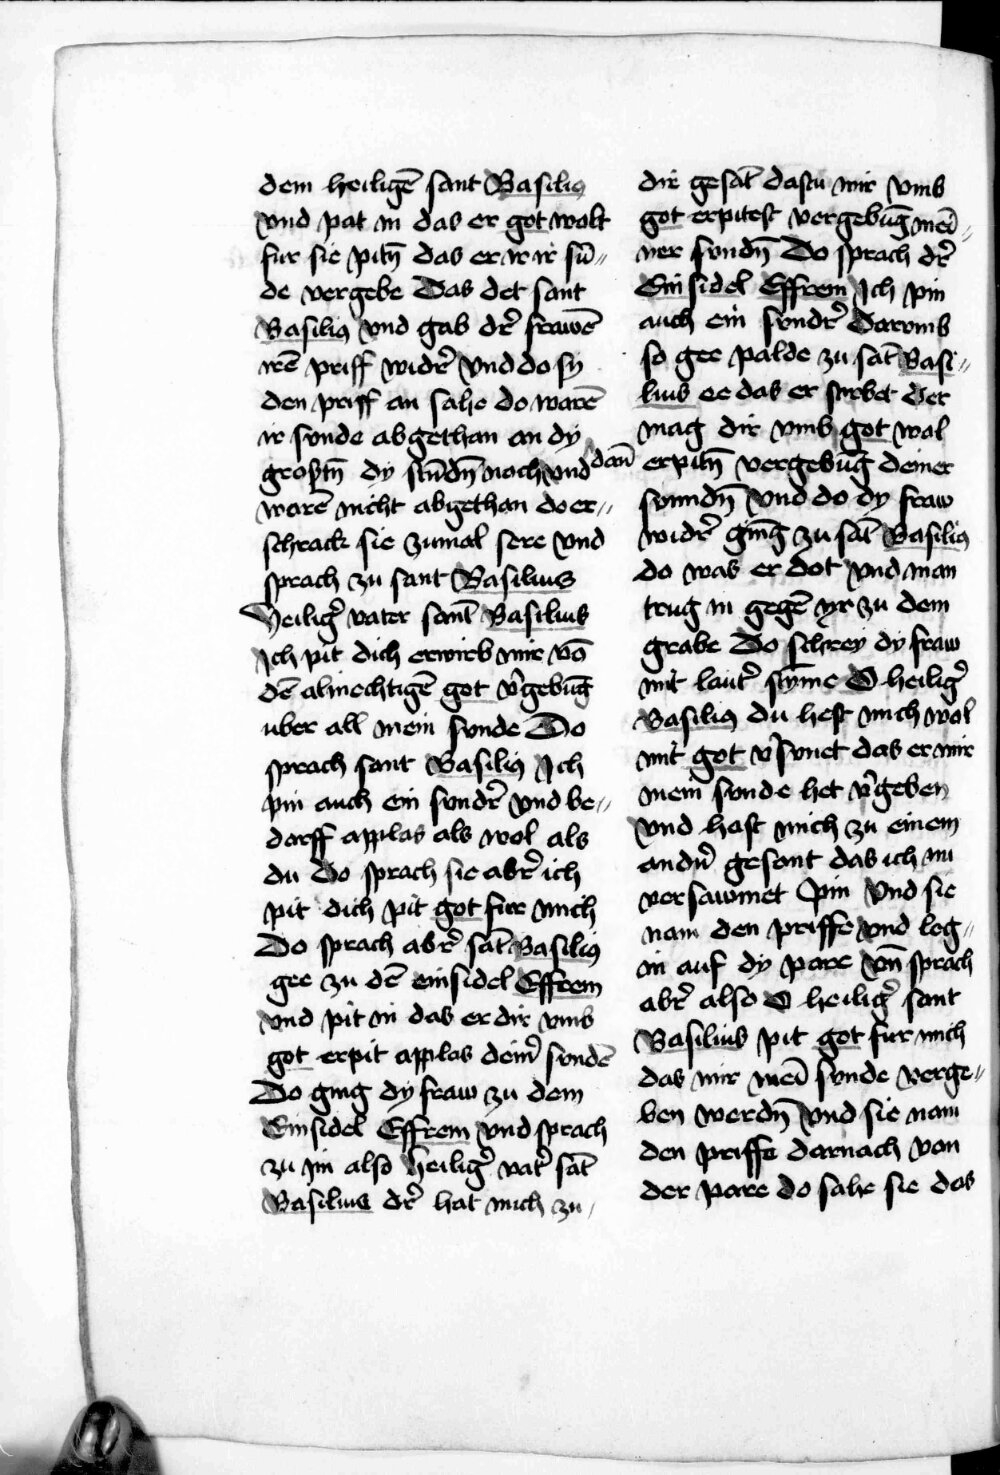 dem heiligē sant Basiliꝯ
vnd pat in das er got wolt
fur sie pitn̄ das er ir ir sū-
de vergebe Das det sant
Basiliꝯ vnd gab dr̄ frawē
irē priff widr̄ vnd do sy
den priff an sahe do warē
ir sunde abgethan an dy
grostn̄ dy stūdn̄ noch vnd dan̄
warē nicht abgethan do er-
schrack sie zumal sere vnd
sprach zu sant Basilius
Heiligr̄ vater sant Basilius
Ich pit dich erwirb mir vō
dē almechtigē got v̄gebūg
uber all mein sunde Do
sprach sant Basiliꝯ Ich
pin auch ein sundr̄ vnd be-
darff applas als wol als
du Do sprach sie abr̄ ich
pit dich pit got fur mich
Do sprach abr̄ sāt Basiliꝯ
gee zu dē einsidel Effrem
vnd pit in das er dir vmb
got erpit applas deinr̄ sundē
Do ging dy fraw zu dem
Einsidel Effrem vnd sprach
zu im also Heiligr̄ vatr̄ sāt
Basilius dr̄ hat mich zu-
dir gesāt dastu mir vmb
got erpitest vergebūg mei-
ner sundn̄ Do sprach dr̄
Einsidel Effrem Ich pin
auch ein sundr̄ Darvmb
so gee palde zu sāt Basi-
lius ee das er stirbet der
mag dir vmb got wol
erpitn̄ vergebūg deiner
sunndn̄ vnd do dy fraw
widr̄ ging zu sāt Basiliꝯ
do was er dot vnd man
trug in gegē yr zu dem
grabe Do schrey dy fraw
mit lautr̄ styme O heiligr̄
Basiliꝯ du hest mich wol
mit got v̄sunet das er mir
mein sunde het v̄geben
vnd hast mich zu einem
andn̄ gesant das ich nu
versawmet pin Vnd sie
nam den priffe vnd leg-
in auf dy pare vn̄ sprach
abr̄ also O heiligr̄ sant
Basilius pit got fur mich
das mir mei sunde verge-
ben werdn̄ vnd sie nam
den priffe darnach von
der pare do sahe sie das